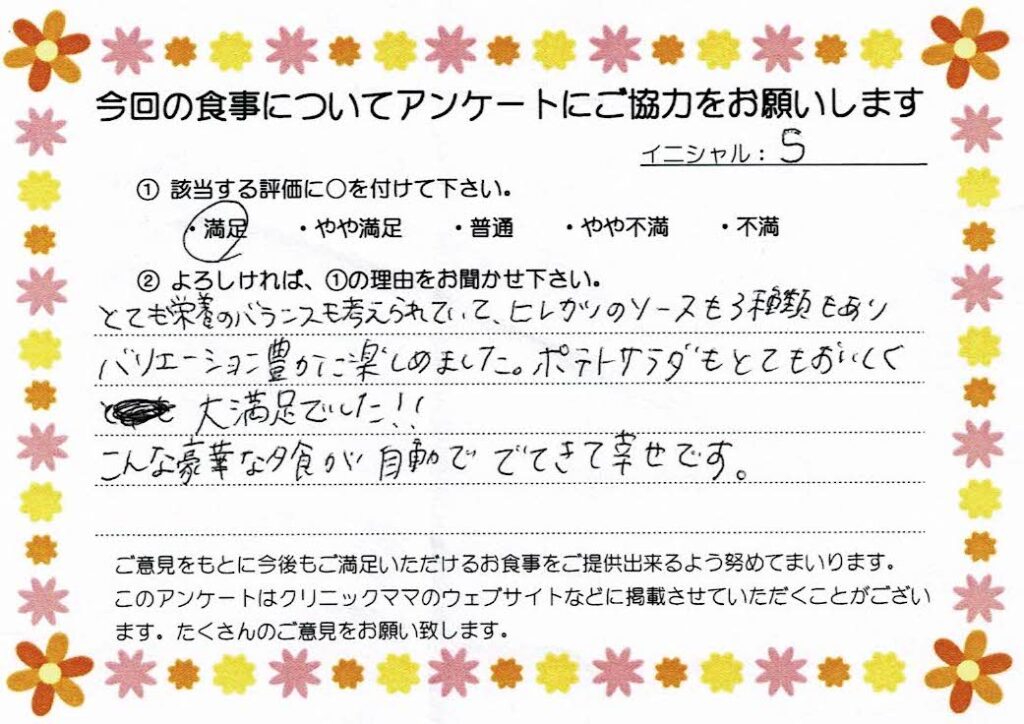 今回の食事についてアンケートにご協力をお願いします
イニシャル：S
① 該当する評価に○を付けて下さい。
・満足 ・やや満足 ・普通 ・やや不満 ・不満
② よろしければ、①の理由をお聞かせ下さい。
とても栄養のバランスも考えられていて、ヒレカツのソースも3種類もあり
バリエーション豊かに楽しめました。ポテトサラダもとてもおいしくて
大満足でした!!
こんな豪華な夕食が自動ででてきて幸せです。
ご意見をもとに今後もご満足いただけるお食事をご提供出来るよう努めてまいります。
このアンケートはクリニックママのウェブサイトなどに掲載させていただくことがござい
ます。たくさんのご意見をお願い致します。